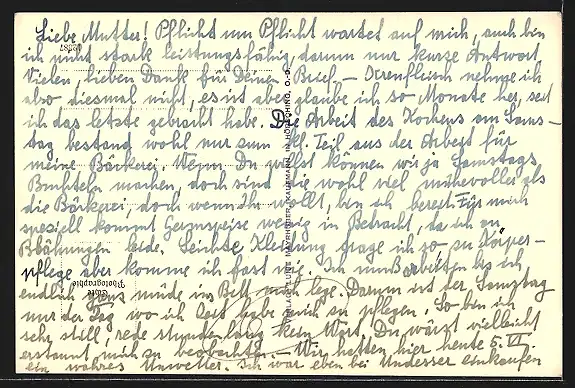 Liebe Mutter! Pflicht um Pflicht wartet auf mich, auch bin
ich nicht stark leistungsfähig, darum nur kurze Antwort
Vielen, lieben Dank für Deinen Brief. – Krenfleisch nehme ich
also diesmal nicht, es ist aber glaube ich so Monate her, seit
ich das letzte gebracht hab. Die Arbeit des Kochens am Sams-
tag bestand wohl nur zum kl. Teil aus der Arbeit für
meine Bäckerei. Wenn Du willst können wir ja Samstags
Buchteln machen, doch sind die wohl viel mühevoller als
die Bäckerei, doch wenn ihr wollt, bin ich bereit. Für mich
speziell kommt Germspeise wenig in Betracht, da ich an
Blähungen leide. Leichte Kleidung trage ich so zu Körper-
pflege aber komme ich fast nie. Ich muß arbeiten bis ich
endlich müde ins Bett mich lege. Darum ist der Samstag
nur der Tag wo ich Zeit habe mich zu pflegen. So bin ich
sehr still, rede stundenlang kein Wort. Du wärst vielleicht
erstaunt mich zu beobachten. – Wir hatten hier heute 5. VII.
ein wahres Unwetter. Ich war eben bei Undesser einkaufen
62587
Echte
Photographie